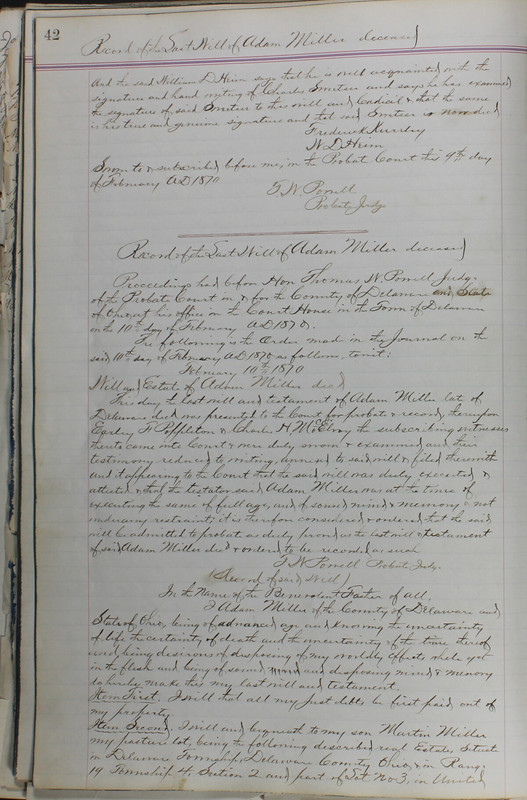 42
Record of the Last Will of Adam Miller deceased
And the said William D Heim says that he is well acquainted with the
signature and hand writing of Charles Smetser and says he has examined
the signature of said Smetser to this will and Codicil & that the same
is his true and genuine signature and that said Smetser is now dead
Frederick
W D Heim
Sworn to & subscribed before me, in the Probate Court this 9th day
of February AD 1870
T W Powell
Probate Judge
Record of the Last Will of Adam Miller deceased
Proceedings had before Hon Thomas W. Powell Judge
of the Probate Court in & for the County of Delaware and State
of Ohio, at his office in the Court House in the Town of Delaware
on the 10th day of February AD 1870.
The following is the Order made in the Journal on the
said 10th day of February AD 1870 as follows, to wit:
February 10th 1870
Will and Estate of Adam Miller decd
This day the last will and testament of Adam Miller late of
Delaware decd was presented to the Court for probate & record, thereupon
Earley F. Poppleton & Charles H. McElroy the subscribing witnesses
thereto came into Court & were duly sworn & examined and their
testimony reduced to writing, annexed to said will & filed therewith
and it appearing to the Court that the said will was duly executed &
attested & that the testator said Adam Miller was at the time of
executing the same of full age, and of sound mind & memory & not
under any restraint; it is therefore considered & ordered that the said
will be admitted to probate as duly proved as the last will & testament
of said Adam Miller decd & ordered to be recorded as such
T W Powell Probate Judge
(Record of said Will)
In the Name of the Benevolent Father of all.
I Adam Miller of the County of Delaware and
State of Ohio, being of advanced age and knowing the uncertainty
of life the certainty of death and the uncertainty of the time thereof
and being desirous of disposing of my worldly effects while yet
in the flesh and being of sound mind and disposing mind & memory
do hereby make this my last will and testament.
Item First. I will that all my just debts be first paid out of
my property.
Item Second. I will and bequeath to my son Martin Miller
my pasture lot, being the following described real Estate, Situate
in Delaware Township, Delaware County Ohio, & in Range
19 Township 4. Section 2 and part of Lot No 3, in United